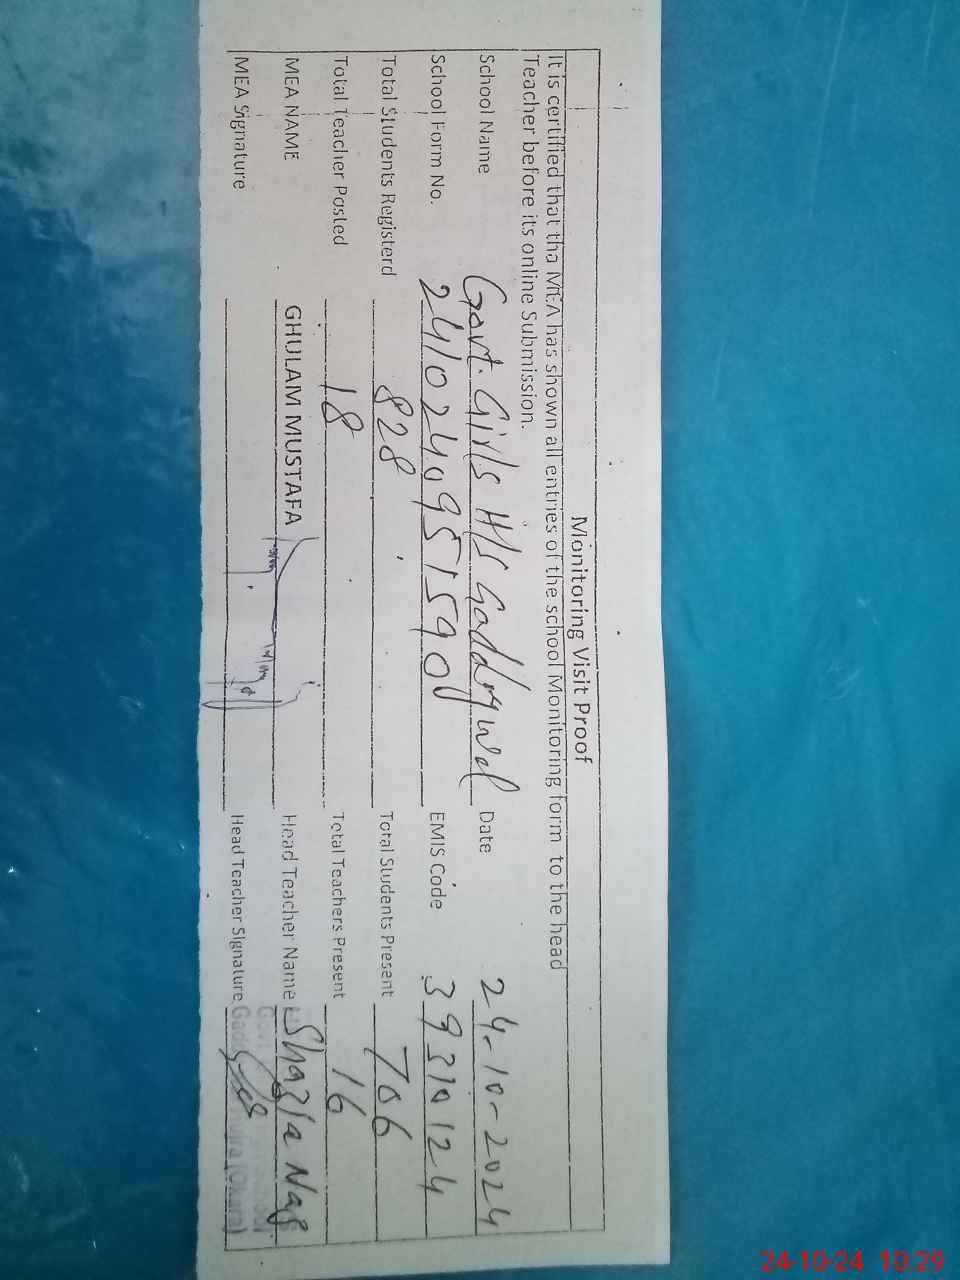 Monitoring Visit Proof
It is certified that tha MEA has shown all entries of the school Monitoring form to the head
Teacher before its online Submission.
School Name Govt. Girls H/S Date 24-10-2024
School Form No. EMIS Code 39310124
Total Students Registerd 828 Total Students Present 706
Total Teacher Posted 18 Total Teachers Present 16
MEA NAME GHULAM MUSTAFA Head Teacher Name Shazia Naz
MEA Signature Head Teacher Signature
(Okara)
24-10-24 10:29